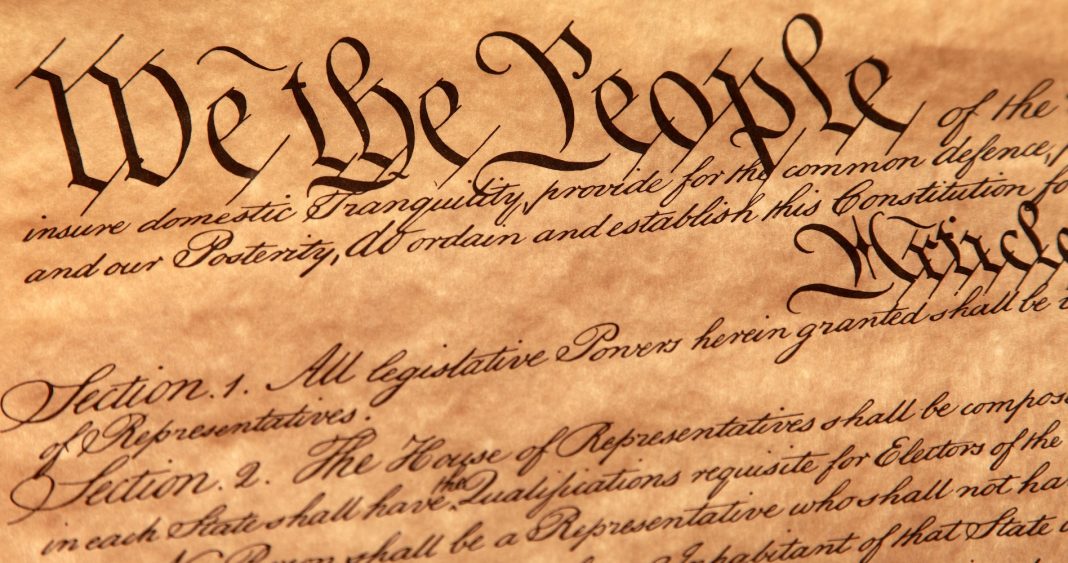 We the People of the
insure domestic Tranquility, provide for the common defence,
and our Posterity, do ordain and establish this Constitution fo
Article
Section. 1. All legislative Powers herein granted shall be
of Representatives.
Section. 2. The House of Representatives shall be compos
the
in each State shall have Qualifications requisite for Electors of the
No Person shall be a Representative who shall not ha
Inhabitant of that State